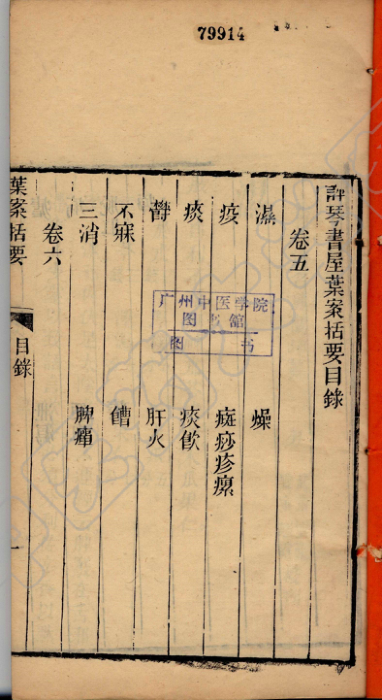 79914
評琴書屋葉案括要目錄
卷五
濕 燥
疫 斑痧疹瘰
痰 痰飲
欝 肝火
不寐 嘈
三消 脾癉
卷六
葉案括要 目錄 一
广州中医学院
图书館
图 书